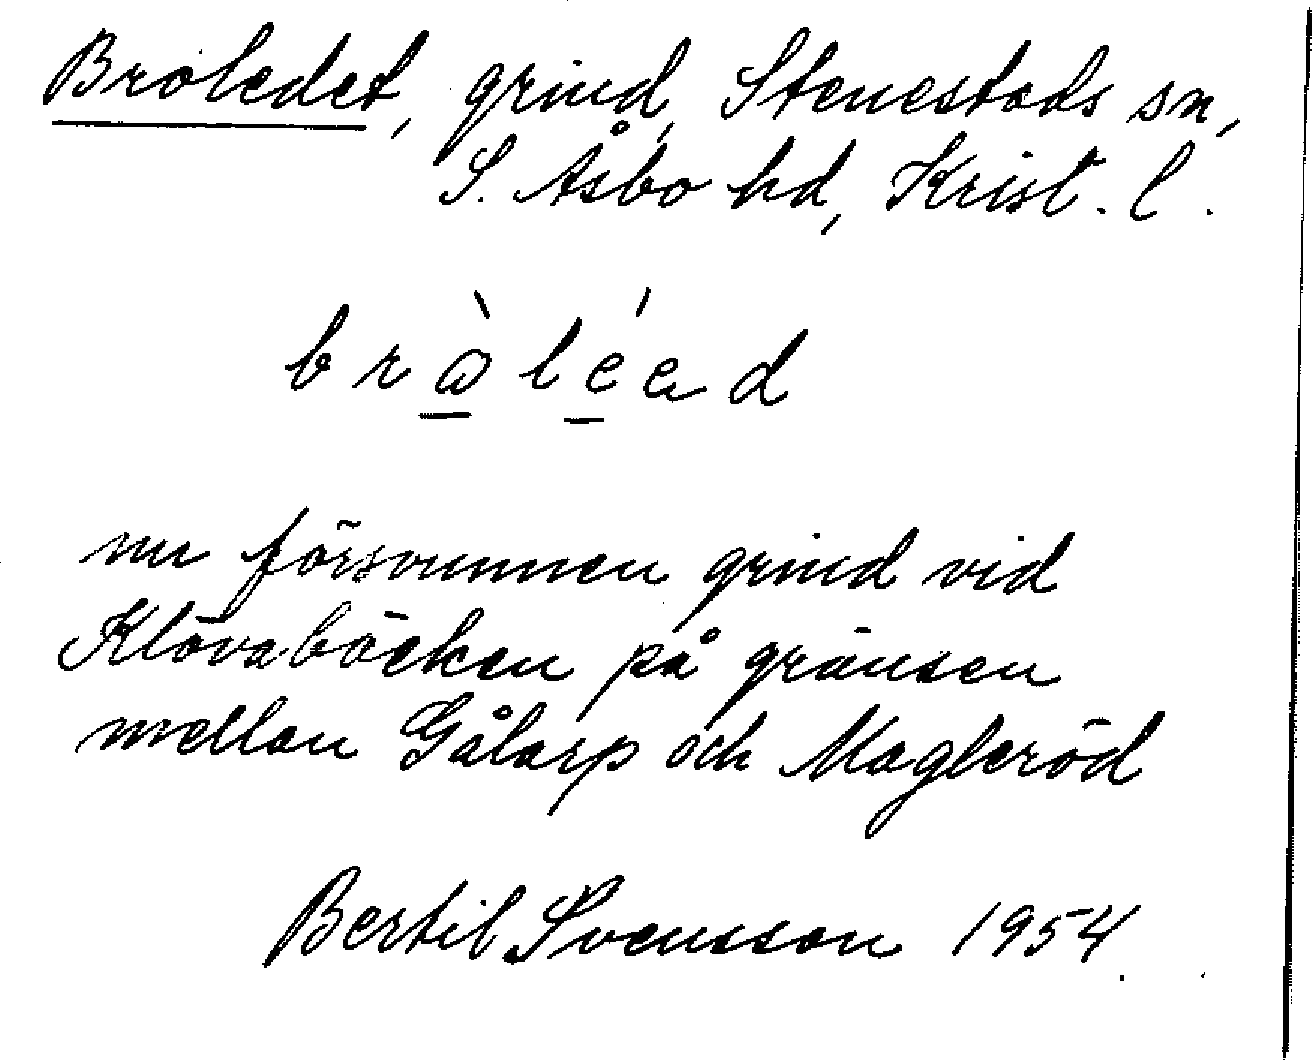 Broledet, grind, Stenestads sn,
S. Åsbo hd, Krist. l.
bràléed
nu försvunnen grind vid
Klövabäcken på gränsen
mellan Gålarp och Magleröd
Bertil Svensson 1954.